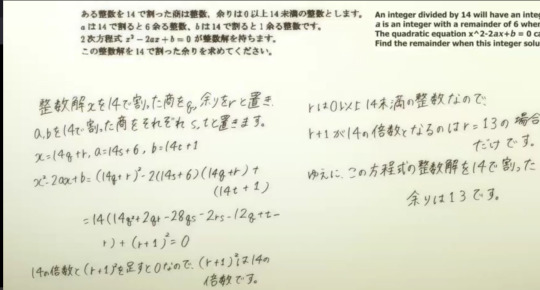 ある整数を14で割った商は整数、余りは0以上14未満の整数とします。
aは14で割ると6余る整数、bは14で割ると1余る整数です。
2次方程式 x²－2ax＋b＝0 が整数解を持ちます。
この整数解を14で割った余りを求めてください。
An integer divided by 14 will have an integ
a is an integer with a remainder of 6 when
The quadratic equation x^2-2ax+b=0 ca
Find the remainder when this integer solu
整数解xを14で割った商をq,余りをrと置き,
a,bを14で割った商をそれぞれs,tと置きます。
x=14q+r, a=14s+6, b=14t+1
x²-2ax+b=(14q+r)²-2(14s+6)(14q+r)+
(14t+1)
=14(14q²+2qr-28qs-2rs-12q+t-
r)+(r+1)²=0
14の倍数と(r+1)²を足すと0なので,(r+1)²は14の
倍数です。
rは0以上14未満の整数なので,
r+1が14の倍数となるのはr=13の場合
だけです。
ゆえに,この方程式の整数解を14で割った
余りは13です。